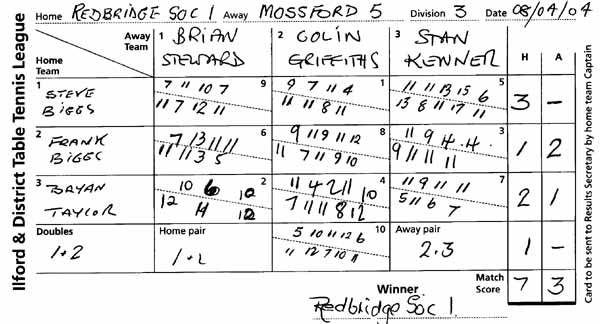 Ilford & District Table Tennis League
Home REDBRIDGE SOC 1 Away MOSSFORD 5 Division 3 Date 08/04/04
Away Team
Home Team
1 BRIAN STEWARD
2 COLIN GRIFFITHS
3 STAN KENNER
H A
1 STEVE BIGGS
7 11 10 7 9
11 7 12 11
9 7 11 4 1
11 11 8 11
11 11 13 15 6 5
13 8 11 17 11
3 –
2 FRANK BIGGS
7 13 11 11 6
11 11 3 5
9 11 9 11 12 8
11 7 11 9 10
11 9 4 4 3
9 11 11 11
1 2
3 BRYAN TAYLOR
10 6 10 2
12 11 12
11 4 2 11 10 4
7 11 11 8 12
11 9 11 11 7
5 11 6 7
2 1
Doubles
1+2
Home pair
1+2
5 10 11 12 6 10
11 12 7 10 11
Away pair
2.3
1 –
Winner
Redbridge Soc 1.
Match Score 7 3
Card to be sent to Results Secretary by home team Captain